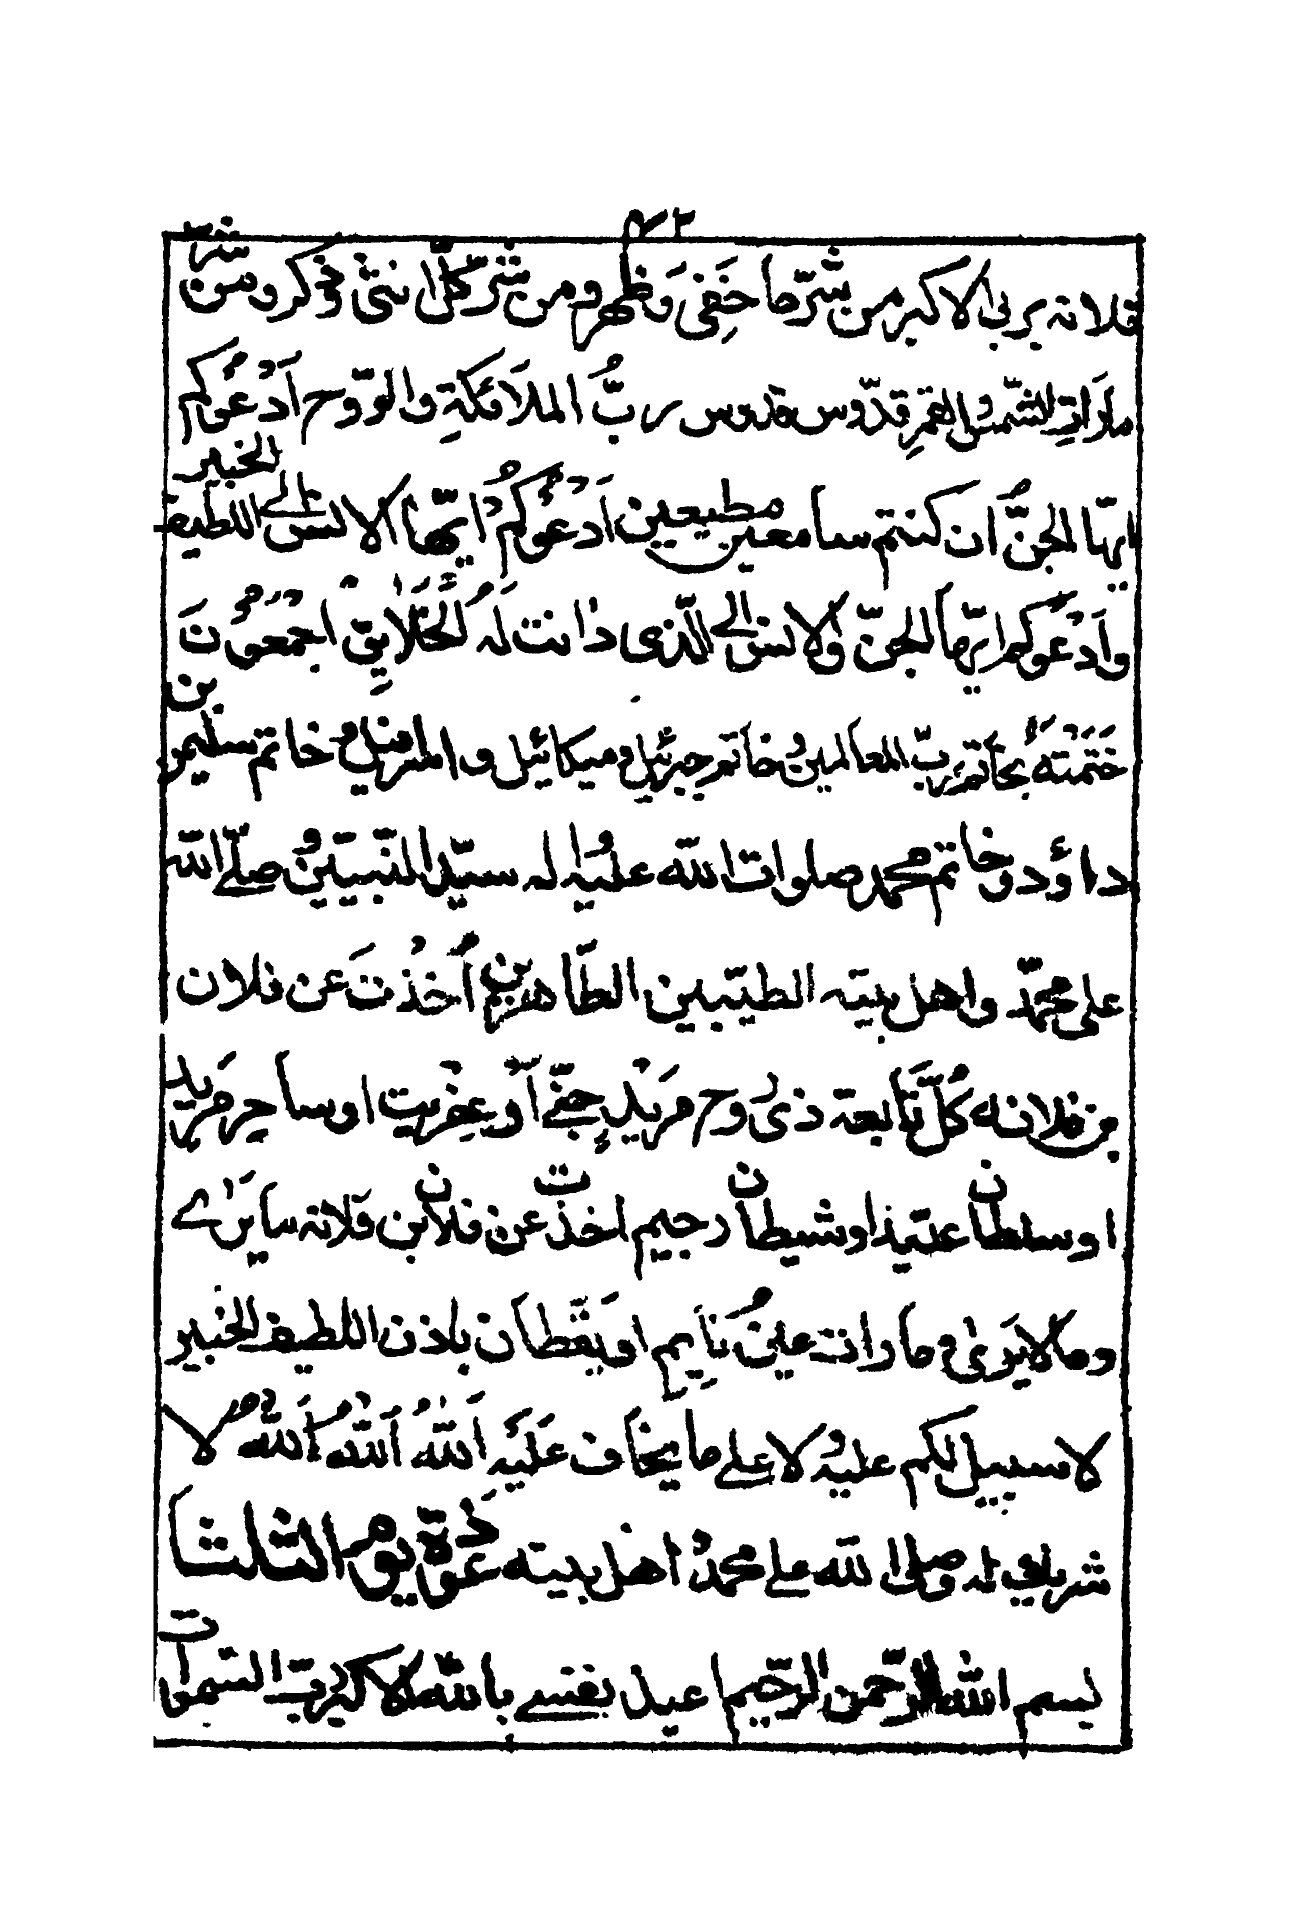 ٢٣
فلانه بربي الاكبر من شرّ ما خَفِي وظهر ومن شرّ كلّ انثىٰ وذكر ومن شرّ
ما رَاتِ الشّمسُ والقمرِ قدّوس قدوس ربُّ الملَائكةِ والرّوح اَدْعُوكم
ايها الجنُّ ان كنتم سامعين مطيعين اَدعُوكُمْ ايّها الانس الے اللطيف الخبير
واَدْعوكم ايّها الجنّ والانس الے الّذى دانت لَهُ الخَلَايِقُ اجمعُونَ
خَتَمْتهُ بخاتم ربّ العالمين وخاتم جبرئيل وميكائيل و اسرافيل وخاتم سليمن بن
داؤد وخاتم محمد صلوات اللّه عليه واله سيّد النّبيّين صلّے اللّه
على محمّد واهل بيته الطيّبين الطّاهرين اَخَذْتَ عن فلان
بن فلانه كلّ تابعة ذى روح مَريْدٍ جنّےٍ اَوْ عِفْريت او ساحرمَريد
او سلطان عنيذ او شيطان رجيم اخذت عن فلان بن فلانه ما يرٰے
وما لا يَرىٰ وما رات عينُ نايِم او يقظان باذن اللطيف الخبير
لا سبيل لكم عليهُ لا علے ما يخاف عَلَيْهِ اَللّٰهُ اَللّٰهُ اَللّٰهُ لا
شريك له وصلى اللّه علے محمدْ اهل بيته عوذة يوم الثلثا
بسم اللّه الرّحمن الرّحيم اعيذ نفسے باللّه الاكبر ربّ السّموات